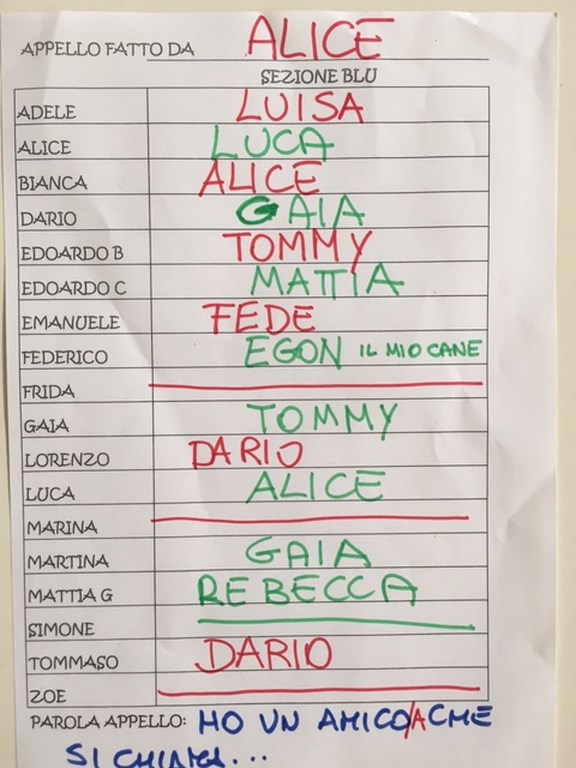 APPELLO FATTO DA ALICE
SEZIONE BLU
ADELE LUISA
ALICE LUCA
BIANCA ALICE
DARIO GAIA
EDOARDO B TOMMY
EDOARDO C MATTIA
EMANUELE FEDE
FEDERICO EGON IL MIO CANE
FRIDA
GAIA TOMMY
LORENZO DARIO
LUCA ALICE
MARINA
MARTINA GAIA
MATTIA G REBECCA
SIMONE
TOMMASO DARIO
ZOE
PAROLA APPELLO: HO UN AMICO/A CHE
SI CHIAMA...